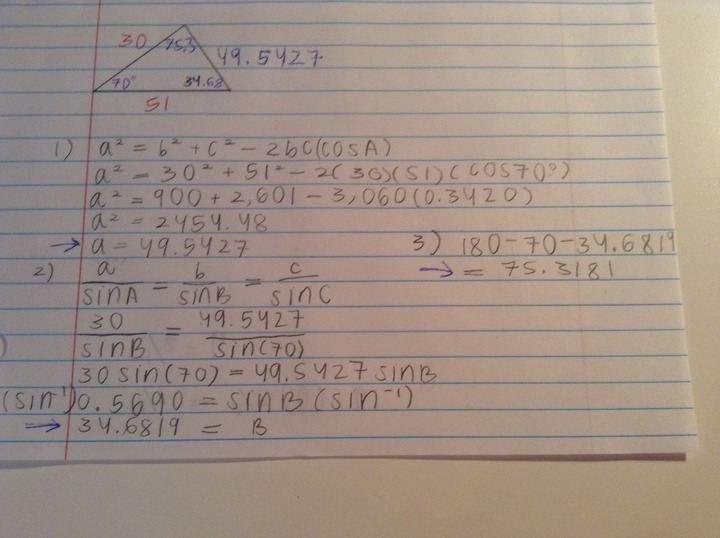 30 75.3 49.5427
70° 34.68
51
1) a² = b² + c² - 2bc(cosA)
a² = 30² + 51² - 2(30)(51)(cos70°)
a² = 900 + 2,601 - 3,060(0.3420)
a² = 2454.48
→ a = 49.5427
2) a/sinA = b/sinB = c/sinC
30/sinB = 49.5427/sin(70)
30 sin(70) = 49.5427 sinB
(sin⁻¹)0.5690 = sinB (sin⁻¹)
→ 34.6819 = B
3) 180-70-34.6819
→ = 75.3181